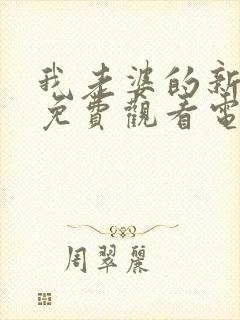 我老婆的新
免費觀看電
周翠麗